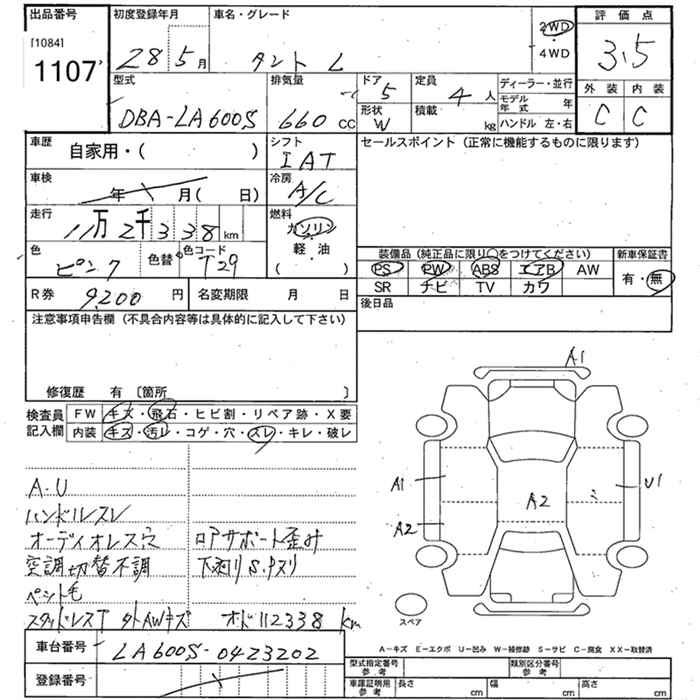 出品番号 初度登録年月 車名・グレード 2WD 評価点
[1084] ・
1107 28 5月 タント L 4WD 3.5
型式 排気量 ドア 定員 ディーラー・並行 外装 内装
5 4人 モデル年式 年
DBA-LA600S 660cc 形状 積載 ハンドル 左・右 C C
W kg
車歴 シフト セールスポイント (正常に機能するものに限ります)
自家用・( ) IAT
車検 冷房
年 月( 日) A/C
走行 燃料
11万2千338km ガソリン
色 色替 色コード 軽・油 装備品 (純正品に限り○をつけてください) 新車保証書
ピンク T29 ( ) PS PW ABS エアB AW 有・無
R券 9200円 名変期限 月 日 SR ナビ TV カワ
注意事項申告欄 (不具合内容等は具体的に記入して下さい) 後日品
修復歴 有 〔箇所 〕
検査員 FW キズ・飛石・ヒビ割・リペア跡・X要
記入欄 内装 キズ・汚レ・コゲ・穴・スレ・キレ・破レ
A1
A.U
A1 U1
ハンドルスレ
A2
オーディオレス穴 ロアサポート歪み
A2
空調切替不調 下廻りS.キズリ
ペント毛
スタッドレスT タトAWキズ オド112338km
スペア
A-キズ E-エクボ U-凹み W-補修跡 S-サビ C-腐食 XX-取替済
車台番号 LA600S-0423202
型式指定番号 参考 類別区分番号 参考
登録番号
車庫証明用 参考 長さ cm 幅 cm 高さ cm